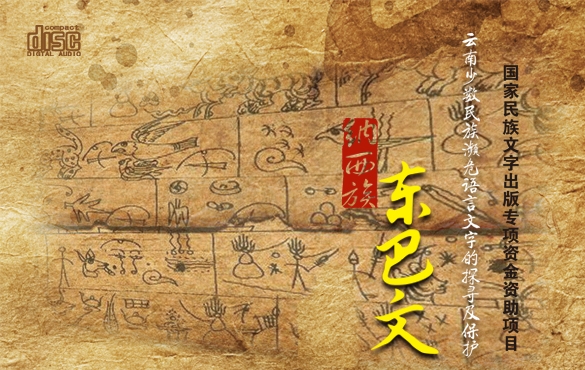 COMPACT
disc
DIGITAL AUDIO
国家民族文字出版专项资金资助项目
云南少数民族濒危语言文字的探寻及保护
纳西族
东巴文